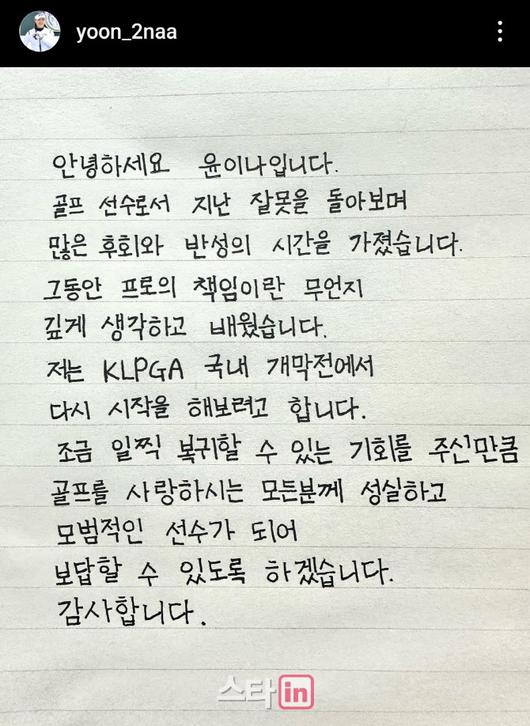 yoon_2naa
안녕하세요 윤이나입니다.
골프 선수로서 지난 잘못을 돌아보며
많은 후회와 반성의 시간을 가졌습니다.
그동안 프로의 책임이란 무언지
깊게 생각하고 배웠습니다.
저는 KLPGA 국내 개막전에서
다시 시작을 해보려고 합니다.
조금 일찍 복귀할 수 있는 기회를 주신만큼
골프를 사랑하시는 모든분께 성실하고
모범적인 선수가 되어
보답할 수 있도록 하겠습니다.
감사합니다.
스타in